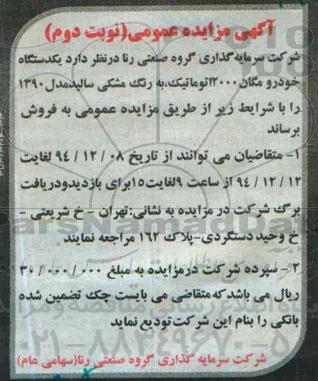 آگهی مزایده عمومی(نوبت دوم)
شرکت سرمایه‌گذاری گروه صنعتی رنا درنظر دارد یکدستگاه
خودرو مگان۲۰۰۰اتوماتیک،به رنگ مشکی سالیدمدل۱۳۹۰
را با شرایط زیر از طریق مزایده عمومی به فروش
برساند
۱- متقاضیان می توانند از تاریخ ۰۸ / ۱۲ / ۹۴ لغایت
۱۲ / ۱۲ / ۹۴ از ساعت ۹لغایت۱۵برای بازدیدودریافت
برگ شرکت در مزایده به نشانی:تهران - خ شریعتی -
خ وحید دستگردی-پلاک ۱۶۲ مراجعه نمایند
۲- سپرده شرکت درمزایده به مبلغ ۰۰۰ / ۰۰۰ / ۳۰
ریال می باشد که متقاضی می بایست چک تضمین شده
بانکی را بنام این شرکت تودیع نماید
شرکت سرمایه گذاری گروه صنعتی رنا(سهامی عام)